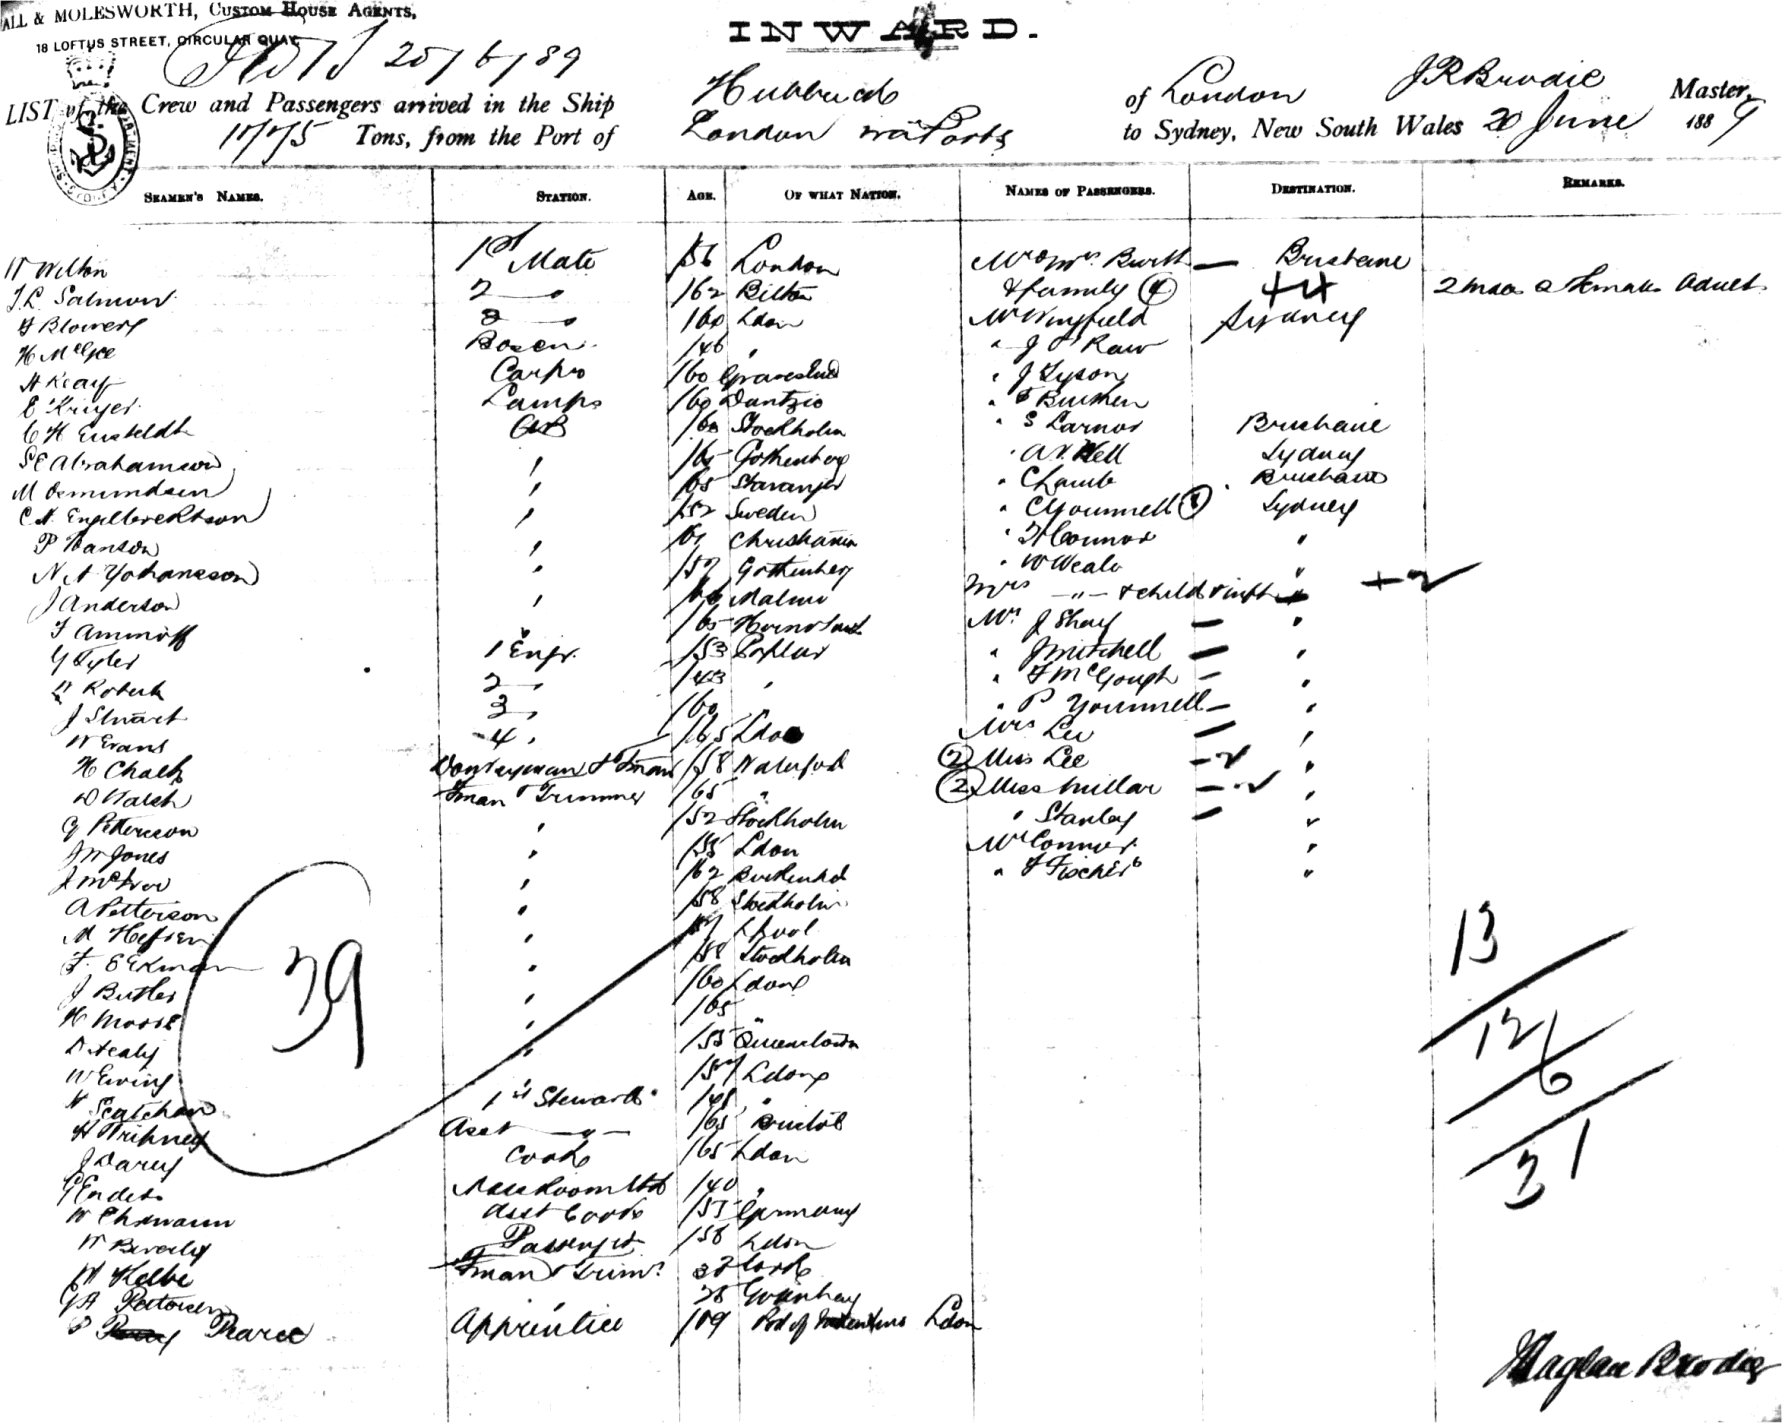 ALL & MOLESWORTH, CUSTOM HOUSE AGENTS,
18 LOFTUS STREET, CIRCULAR QUAY
20/6/89
INWARD.
LIST of the Crew and Passengers arrived in the Ship Hubbuck of London J R Brodie Master,
1775 Tons, from the Port of London via Ports to Sydney, New South Wales 20 June 1889
SEAMEN'S NAMES. STATION. AGE. OF WHAT NATION. NAMES OF PASSENGERS. DESTINATION. REMARKS.
W Wilton 1st Mate /56 London Mr & Mrs Burth — Brisbane
J L Salmon 2 — /62 Bilton & family (4) ++ 2 male 2 female adults
F Blowers 3 — /60 Ldon Mr Wingfield Sydney
H McGee Bosen /46 " " J O Raw
H Keay Carpr /60 Gravesend " J Tyson
E Kruger Lamps /60 Dantzic " Burken
C H AB /60 Stockholm " S Larnor Brisbane
S E Abrahamson " /65 Gothenberg " Well Sydney
M Osmundsen " /65 Stavanger " C Lamb Brisbane
C A Engelbrecktson " /52 Sweden " C Yournell Sydney
P Hanson " Christiania " Connor "
N A Yohansson " /57 Gothenberg " W Weale "
J Anderson " /66 Malmo Mrs —"— & child & inft " + 2
F Ammoff " /65 Mr J Shay — "
G Tyler 1 Engr. /53 Poplar " J Mitchell — "
W Robert 2 " /43 " " F McGough — "
J Stuart 3 " /60 " " P Yournell — "
W Evans 4 " /65 Ldon Mrs Lee — "
H Chalk Donkeyman & Fman /58 Waterford (2) Miss Lee — 2 "
D Walsh Fman & Trimmer /65 " (2) Miss Millar — 2 "
G Petterson " /52 Stockholm " Stanley — "
J W Jones " /55 Ldon Mr Connor "
J " /62 Birkenhd " F Fischer "
A Petterson " /58 Stockholm
M " Lpool
F. E Ekman " /58 Stockholm
J Butler " /60 Ldon
H Morse " /65 "
D Healy " /55 Queenstown
W Ewing /57 Ldon
1st Steward /48 "
H Asst —"— /65 Bristol
J Darcy Cook /65 Ldon
Messroom Std /40 "
W Ehrmann Asst Cook /55 Germany
W Beverly Passenger /58 Ldon
W Kelbe Fman & Trimr 27 Cork
G A Petersen " 28
P Pearce Apprentice /09 Ldon
39
13
12
6
31
Raglan Brodie